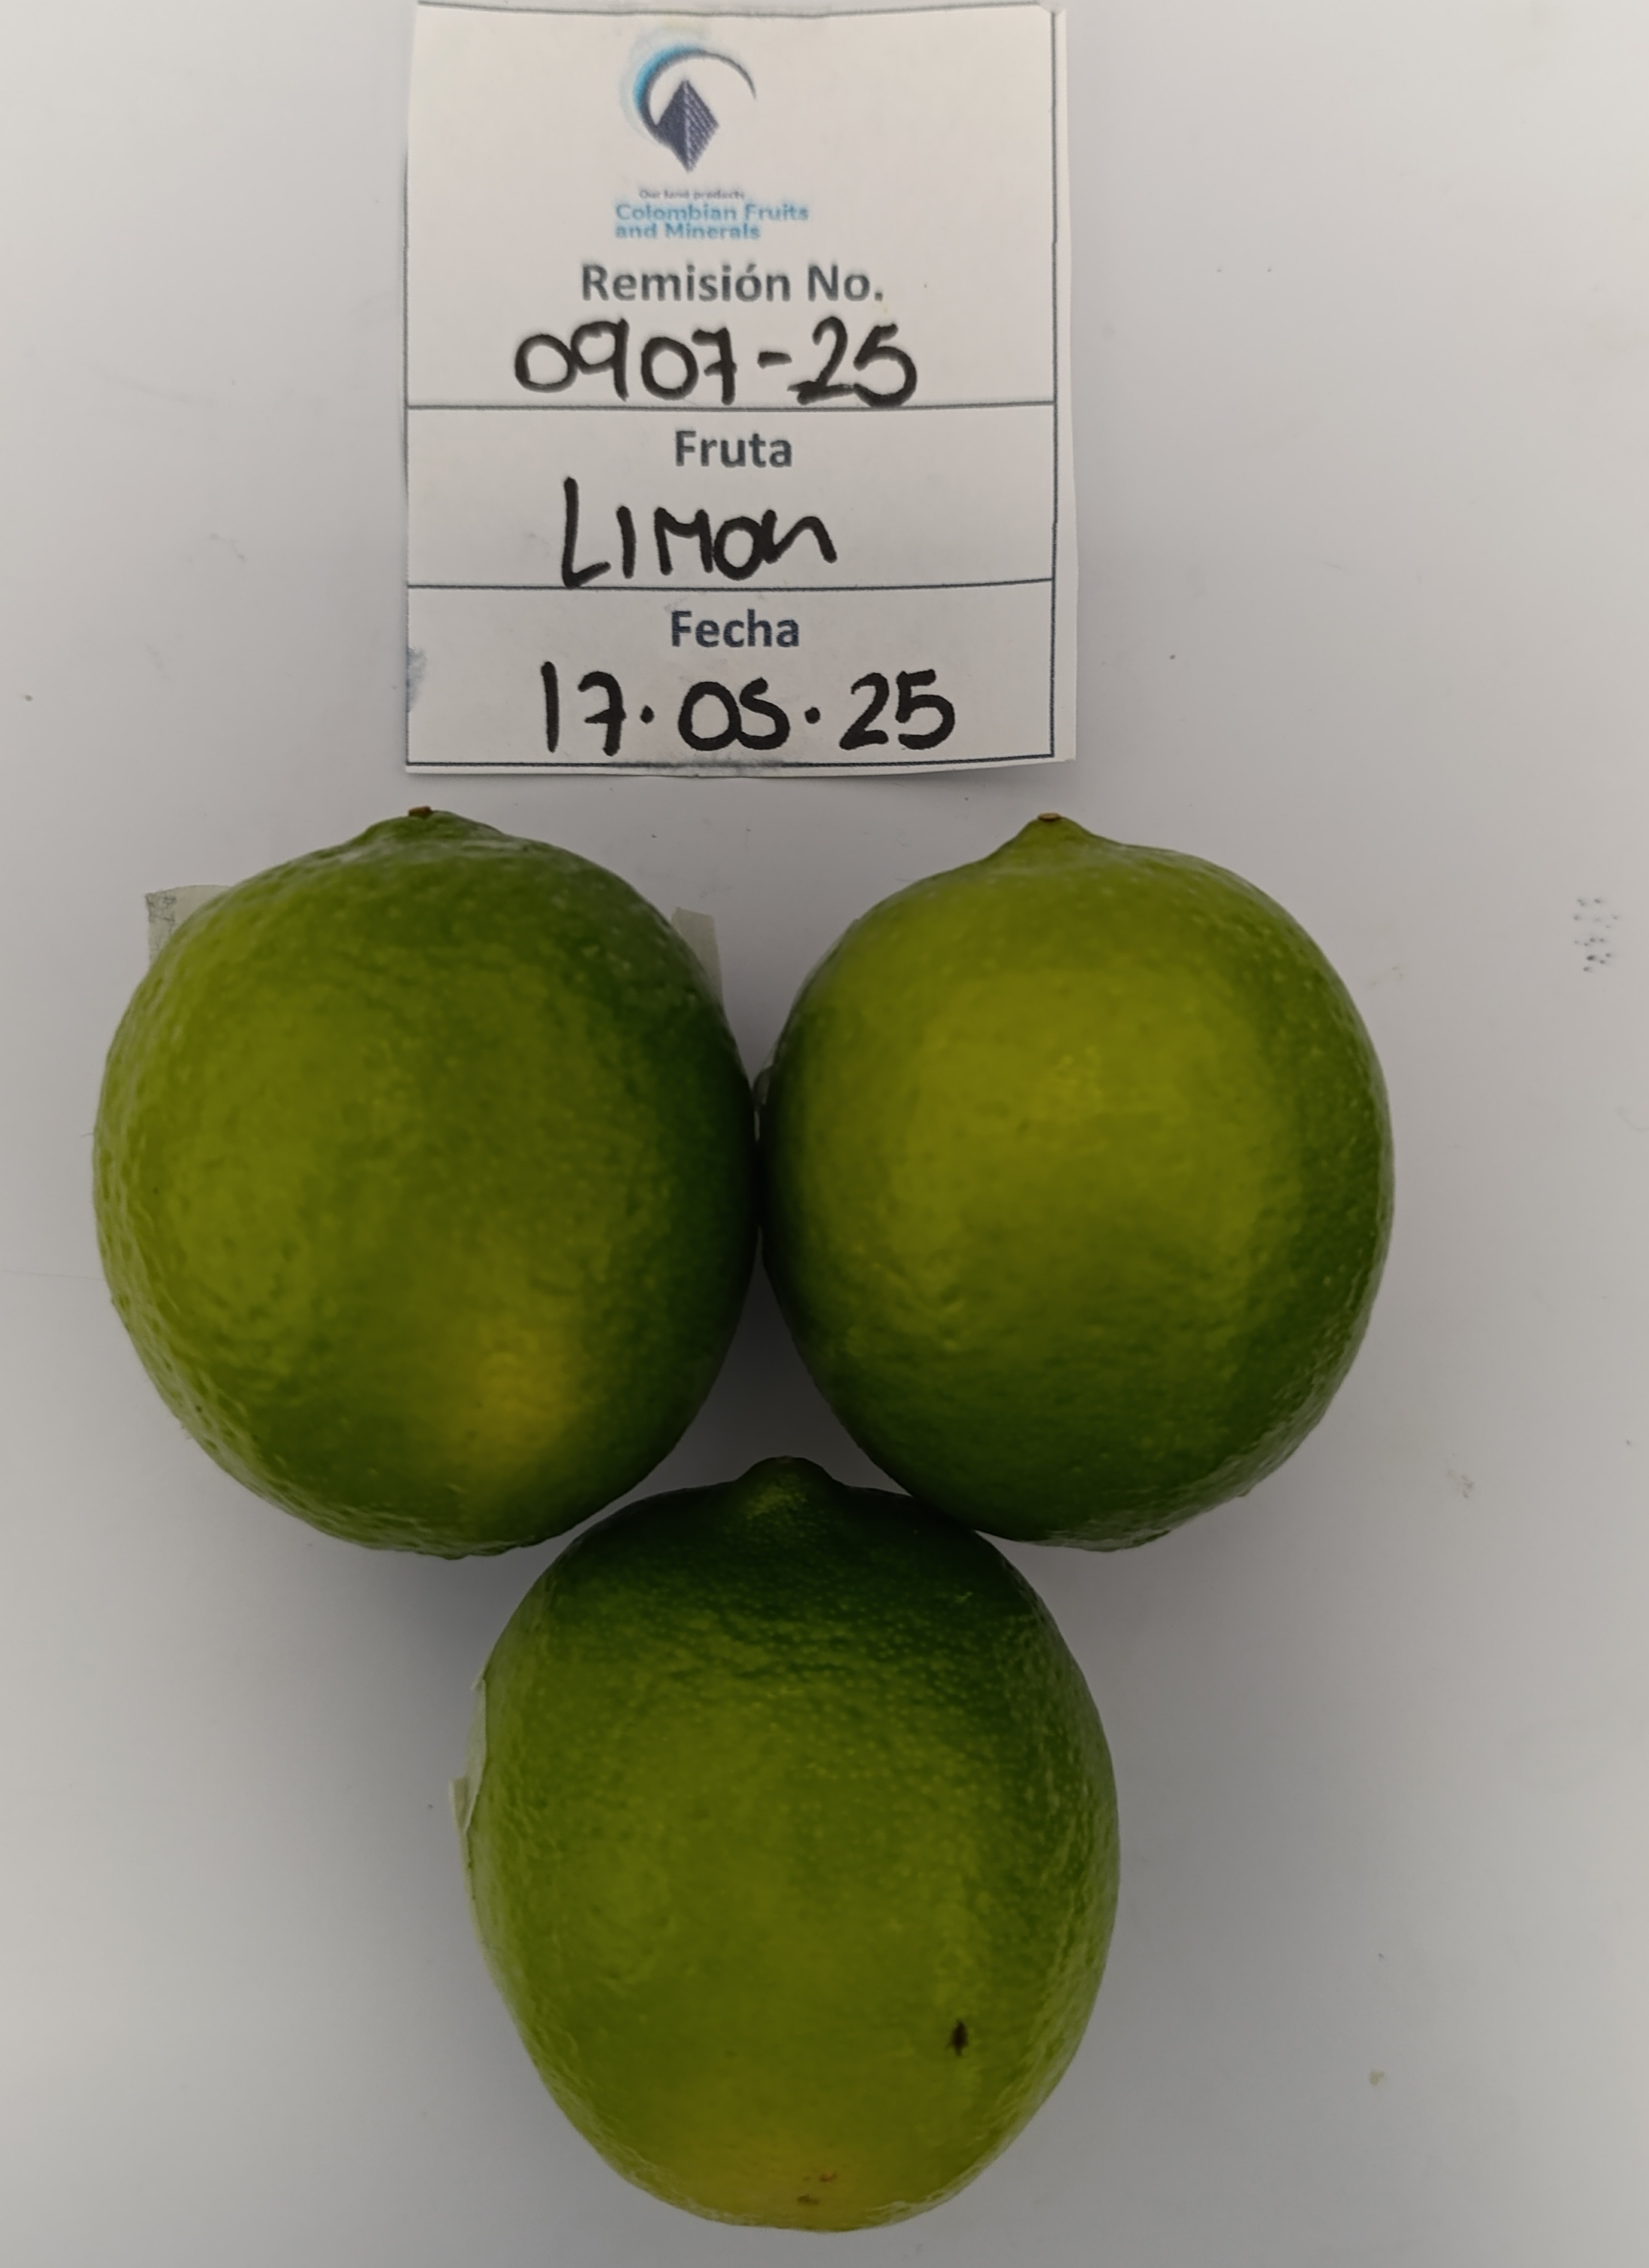 Our land products
Colombian Fruits
and Minerals
Remisión No.
0907-25
Fruta
LIMON
Fecha
17.05.25